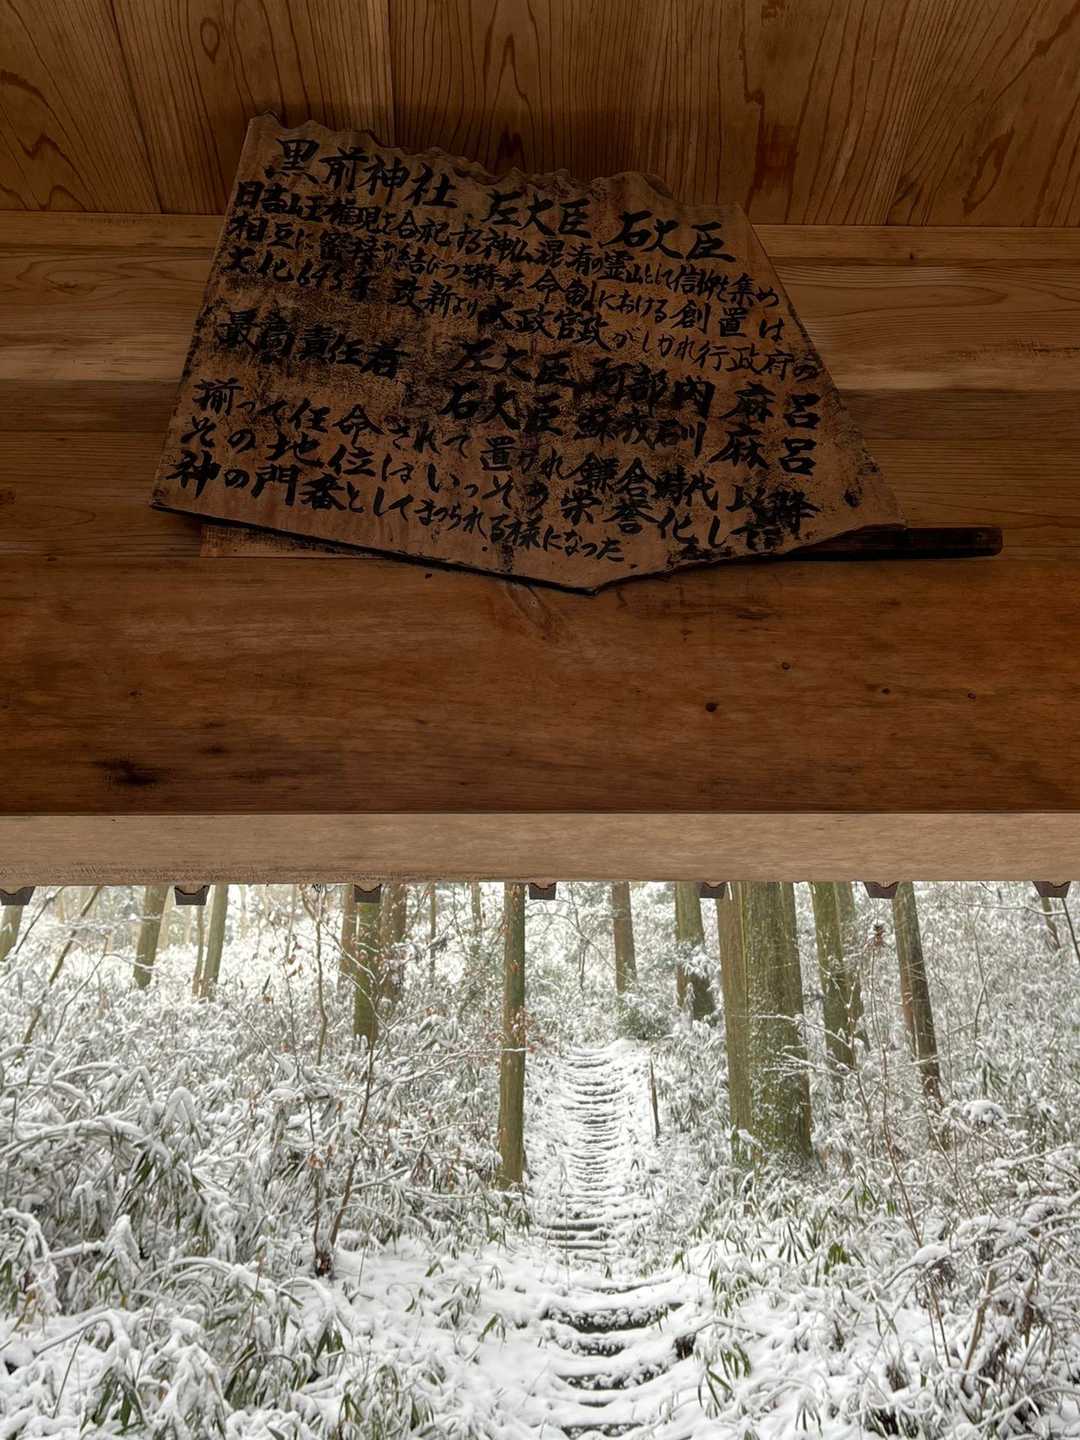 黒前神社 左大臣 石大臣
日吉山王権現を合祀する神仏混淆の霊山として信仰を集め
相互に密接な結びつきを持った
大化645年 改新より 太政官政
命制における創置は
がしかれ行政府の
最高責任者 左大臣 阿部内麻呂
石大臣 蘇我石川麻呂
揃って任命されて置かれ 鎌倉時代以降
その地位はいっそう栄誉化して
神の門番としてまつられる様になった